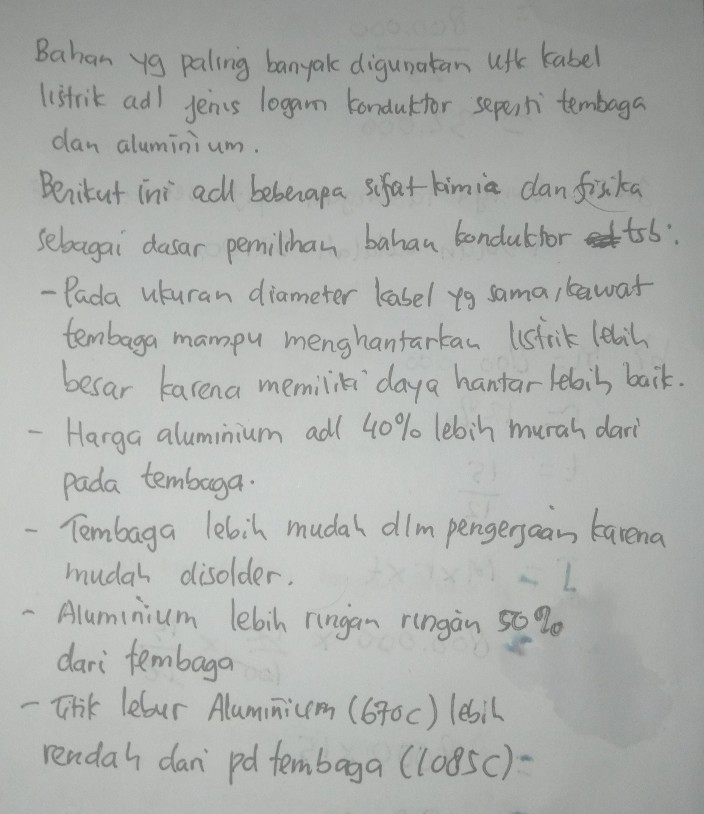 Bahan yg paling banyak digunakan utk kabel
listrik adl jenis logam konduktor seperti tembaga
dan aluminium.
Berikut ini adl beberapa sifat kimia dan fisika
sebagai dasar pemilihan bahan konduktor tsb:
- Pada ukuran diameter kabel yg sama, kawat
tembaga mampu menghantarkan listrik lebih
besar karena memiliki daya hantar lebih baik.
- Harga aluminium adl 40% lebih murah dari
pada tembaga.
- Tembaga lebih mudah dlm pengerjaan karena
mudah disolder.
- Aluminium lebih ringan ringan 50%
dari tembaga
- Titik lebur Aluminium (670c) lebih
rendah dari pd tembaga (1085C)-